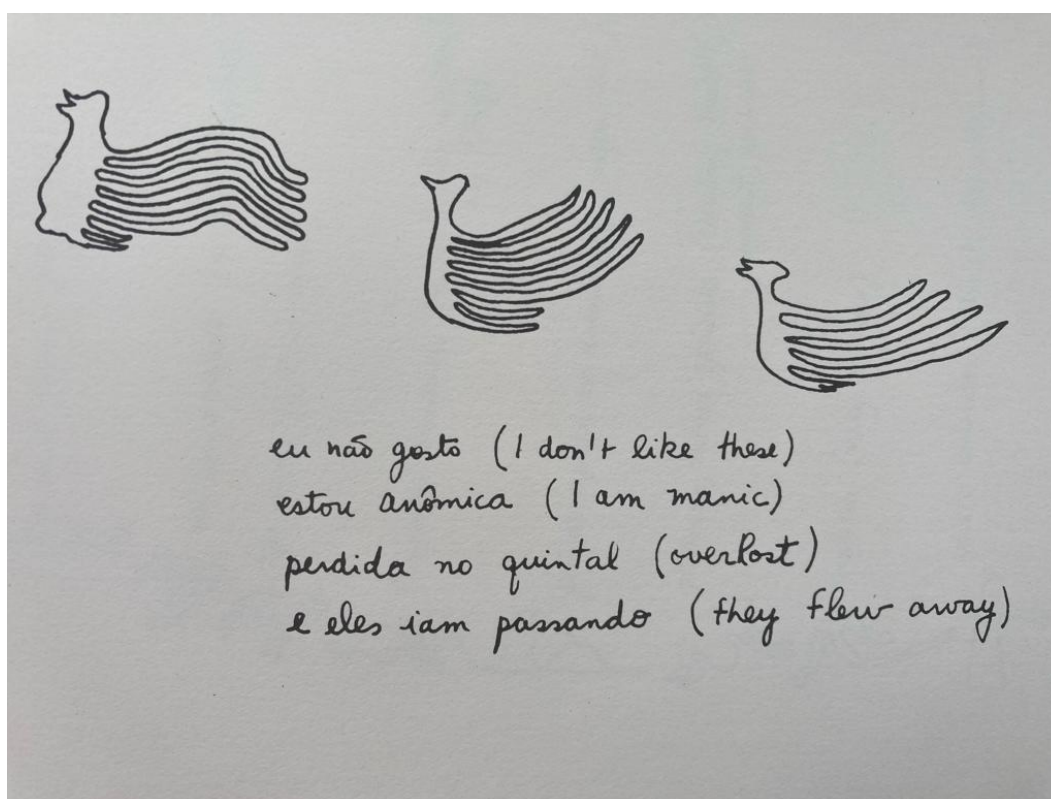 eu não gosto (I don't like these)
estou anômica (I am manic)
perdida no quintal (overlost)
e eles iam passando (they flew away)